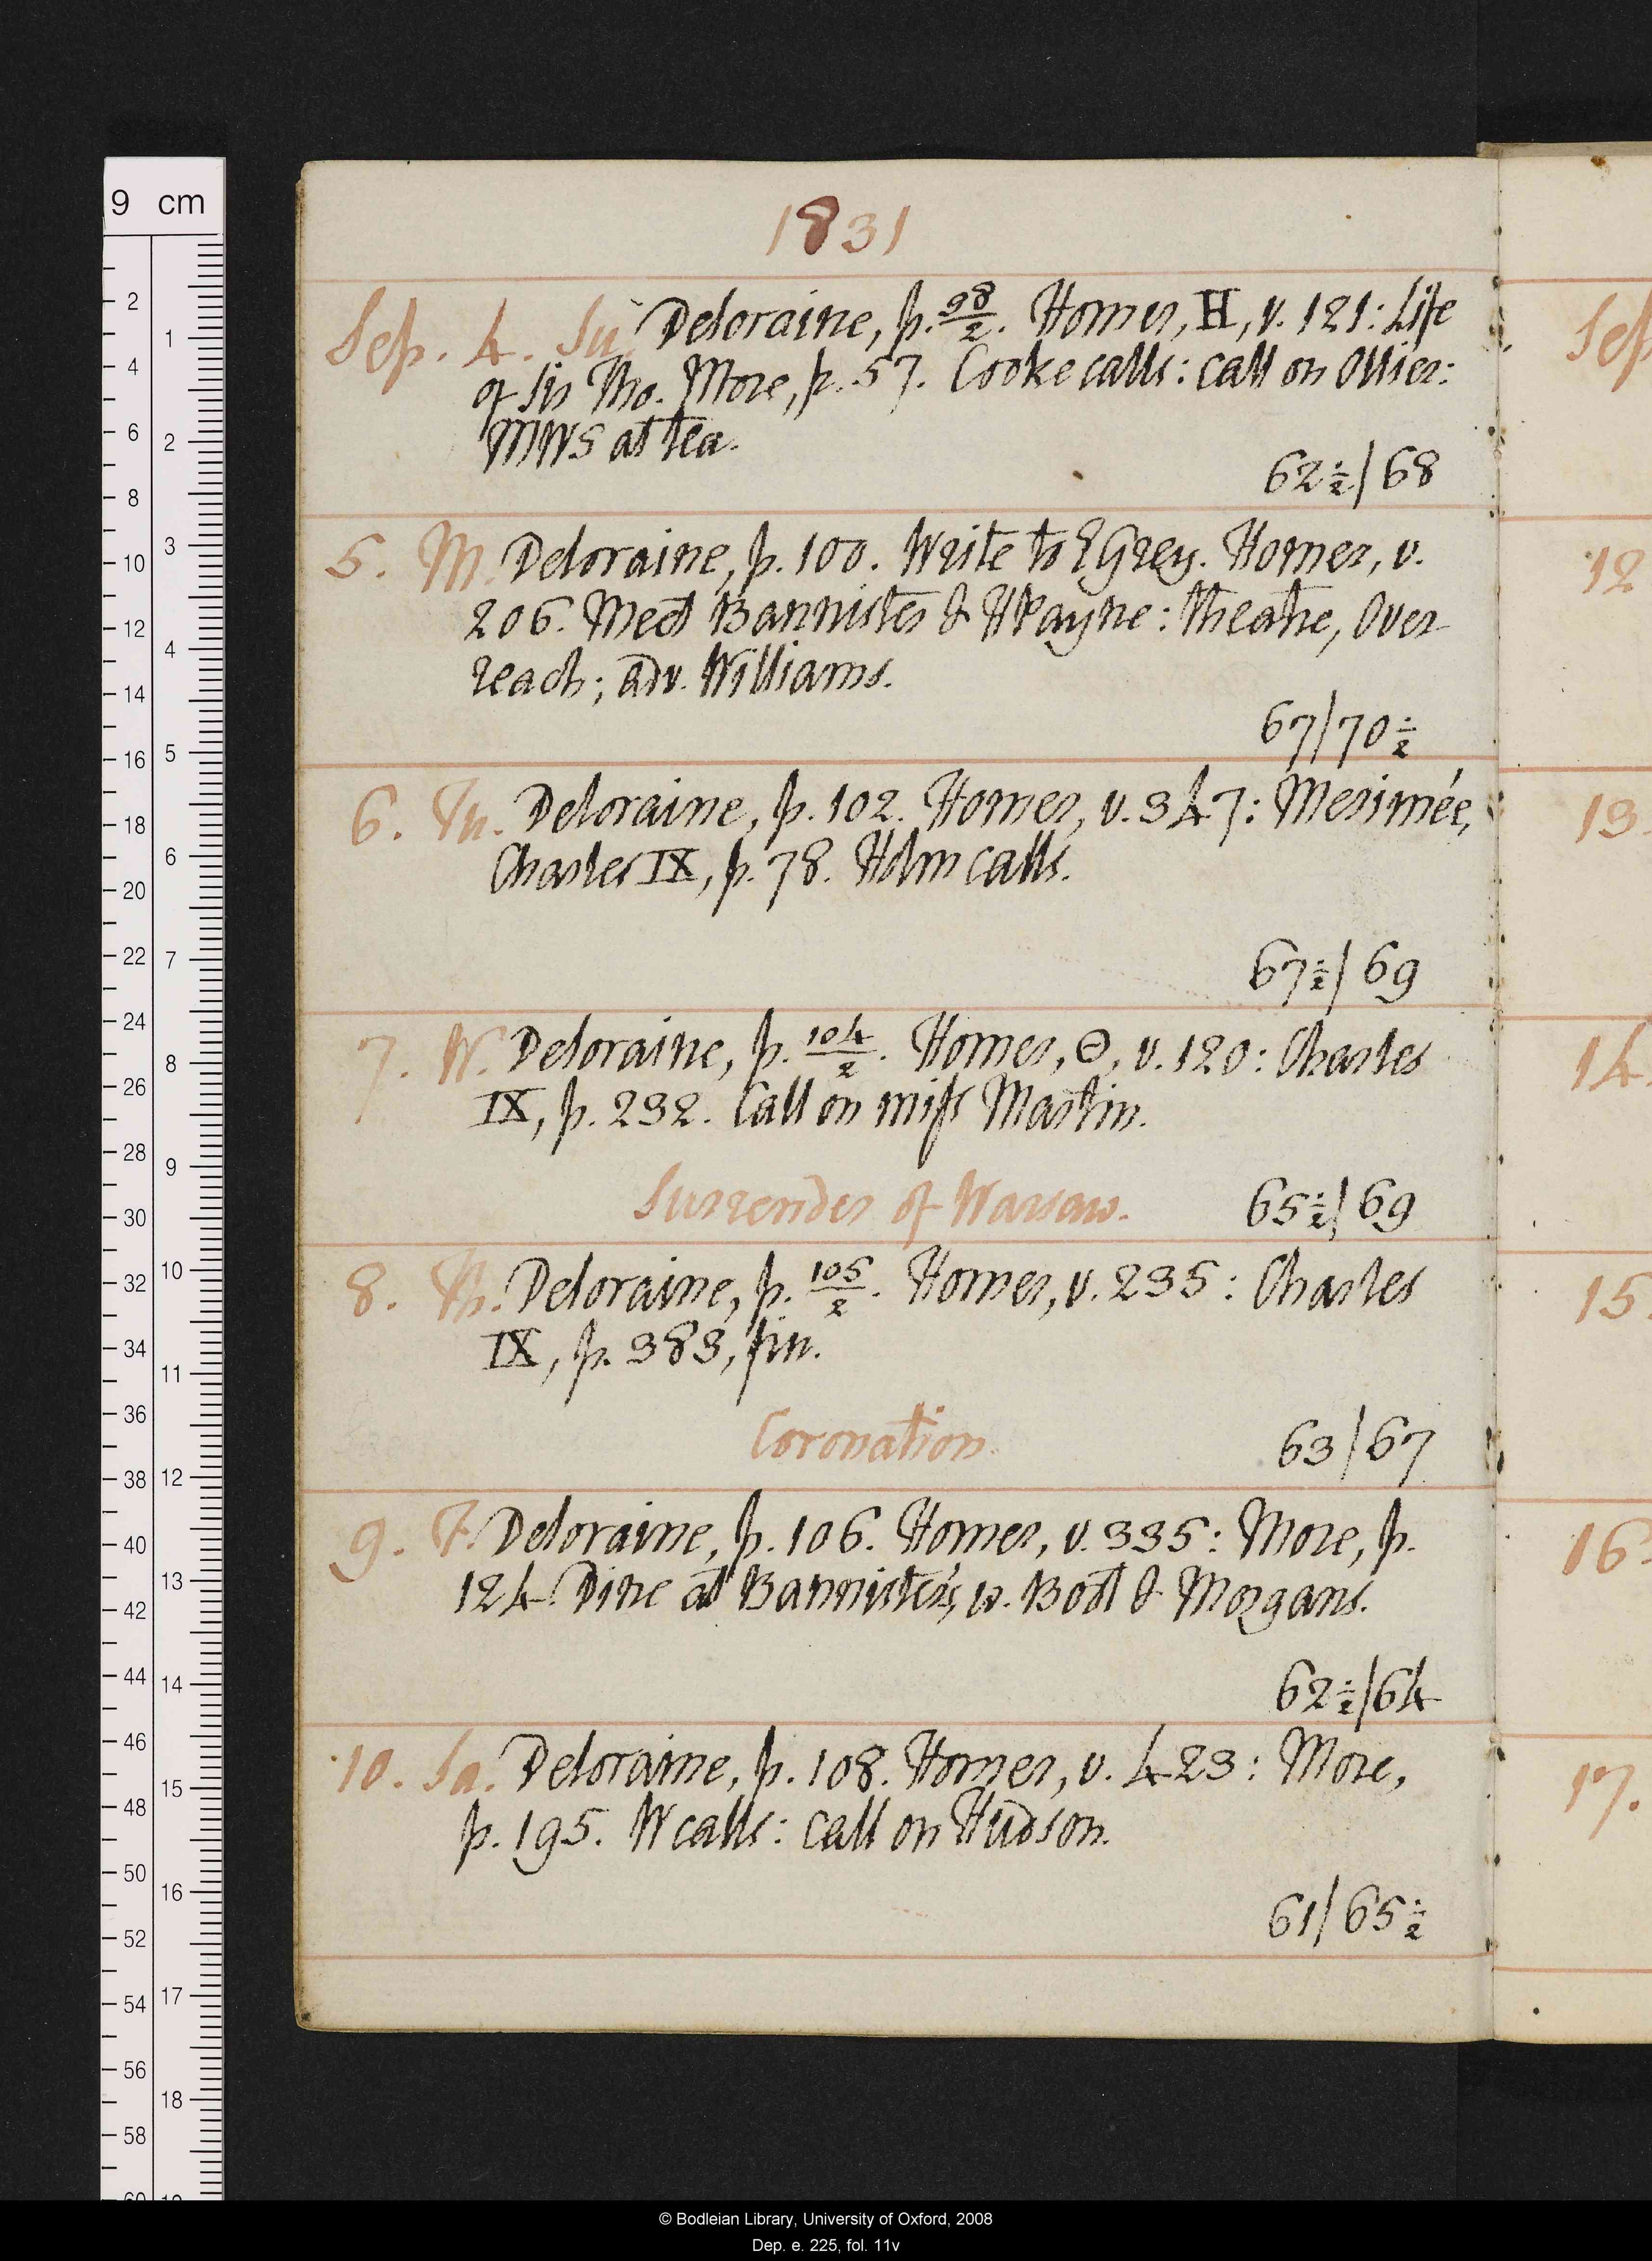 1831
Sep. 4. Su. Deloraine, p. 98/2. Homer, H, v. 121: Life
of Sir Tho. More, p. 57. Cooke calls: call on Ollier:
MWS at tea.
62½/68
5. M. Deloraine, p. 100. Write to E Grey. Homer, v.
206. Meet Bannister & H Payne: theatre, Over-
reach; adv. Williams.
67/70½
6. Tu. Deloraine, p. 102. Homer, v. 347: Merimée,
Charles IX, p. 78. Holm calls.
67½/69
7. W. Deloraine, p. 104/2. Homer, Θ, v. 120: Charles
IX, p. 232. Call on miſs Martin.
Surrender of Warsaw. 65½/69
8. Th. Deloraine, p. 105/2. Homer, v. 235: Charles
IX, p. 383, fin.
Coronation. 63/67
9. F. Deloraine, p. 106. Homer, v. 335: More, p.
124. Dine at Bannister's, w. Bott & Morgans.
62½/64
10. Sa. Deloraine, p. 108. Homer, v. 423: More,
p. 195. W calls: call on Hudson.
61/65½
Sep
12
13
14
15
16
17.
9 cm
© Bodleian Library, University of Oxford, 2008
Dep. e. 225, fol. 11v